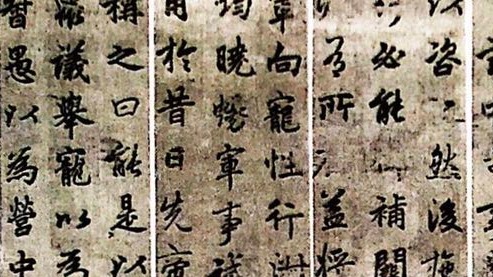 以咨之然後施
行必能補闕
有所益將
軍向寵性行淑
均曉暢軍事試
用於昔日先帝
稱之曰能是以
眾議舉寵以為
督愚以為營中